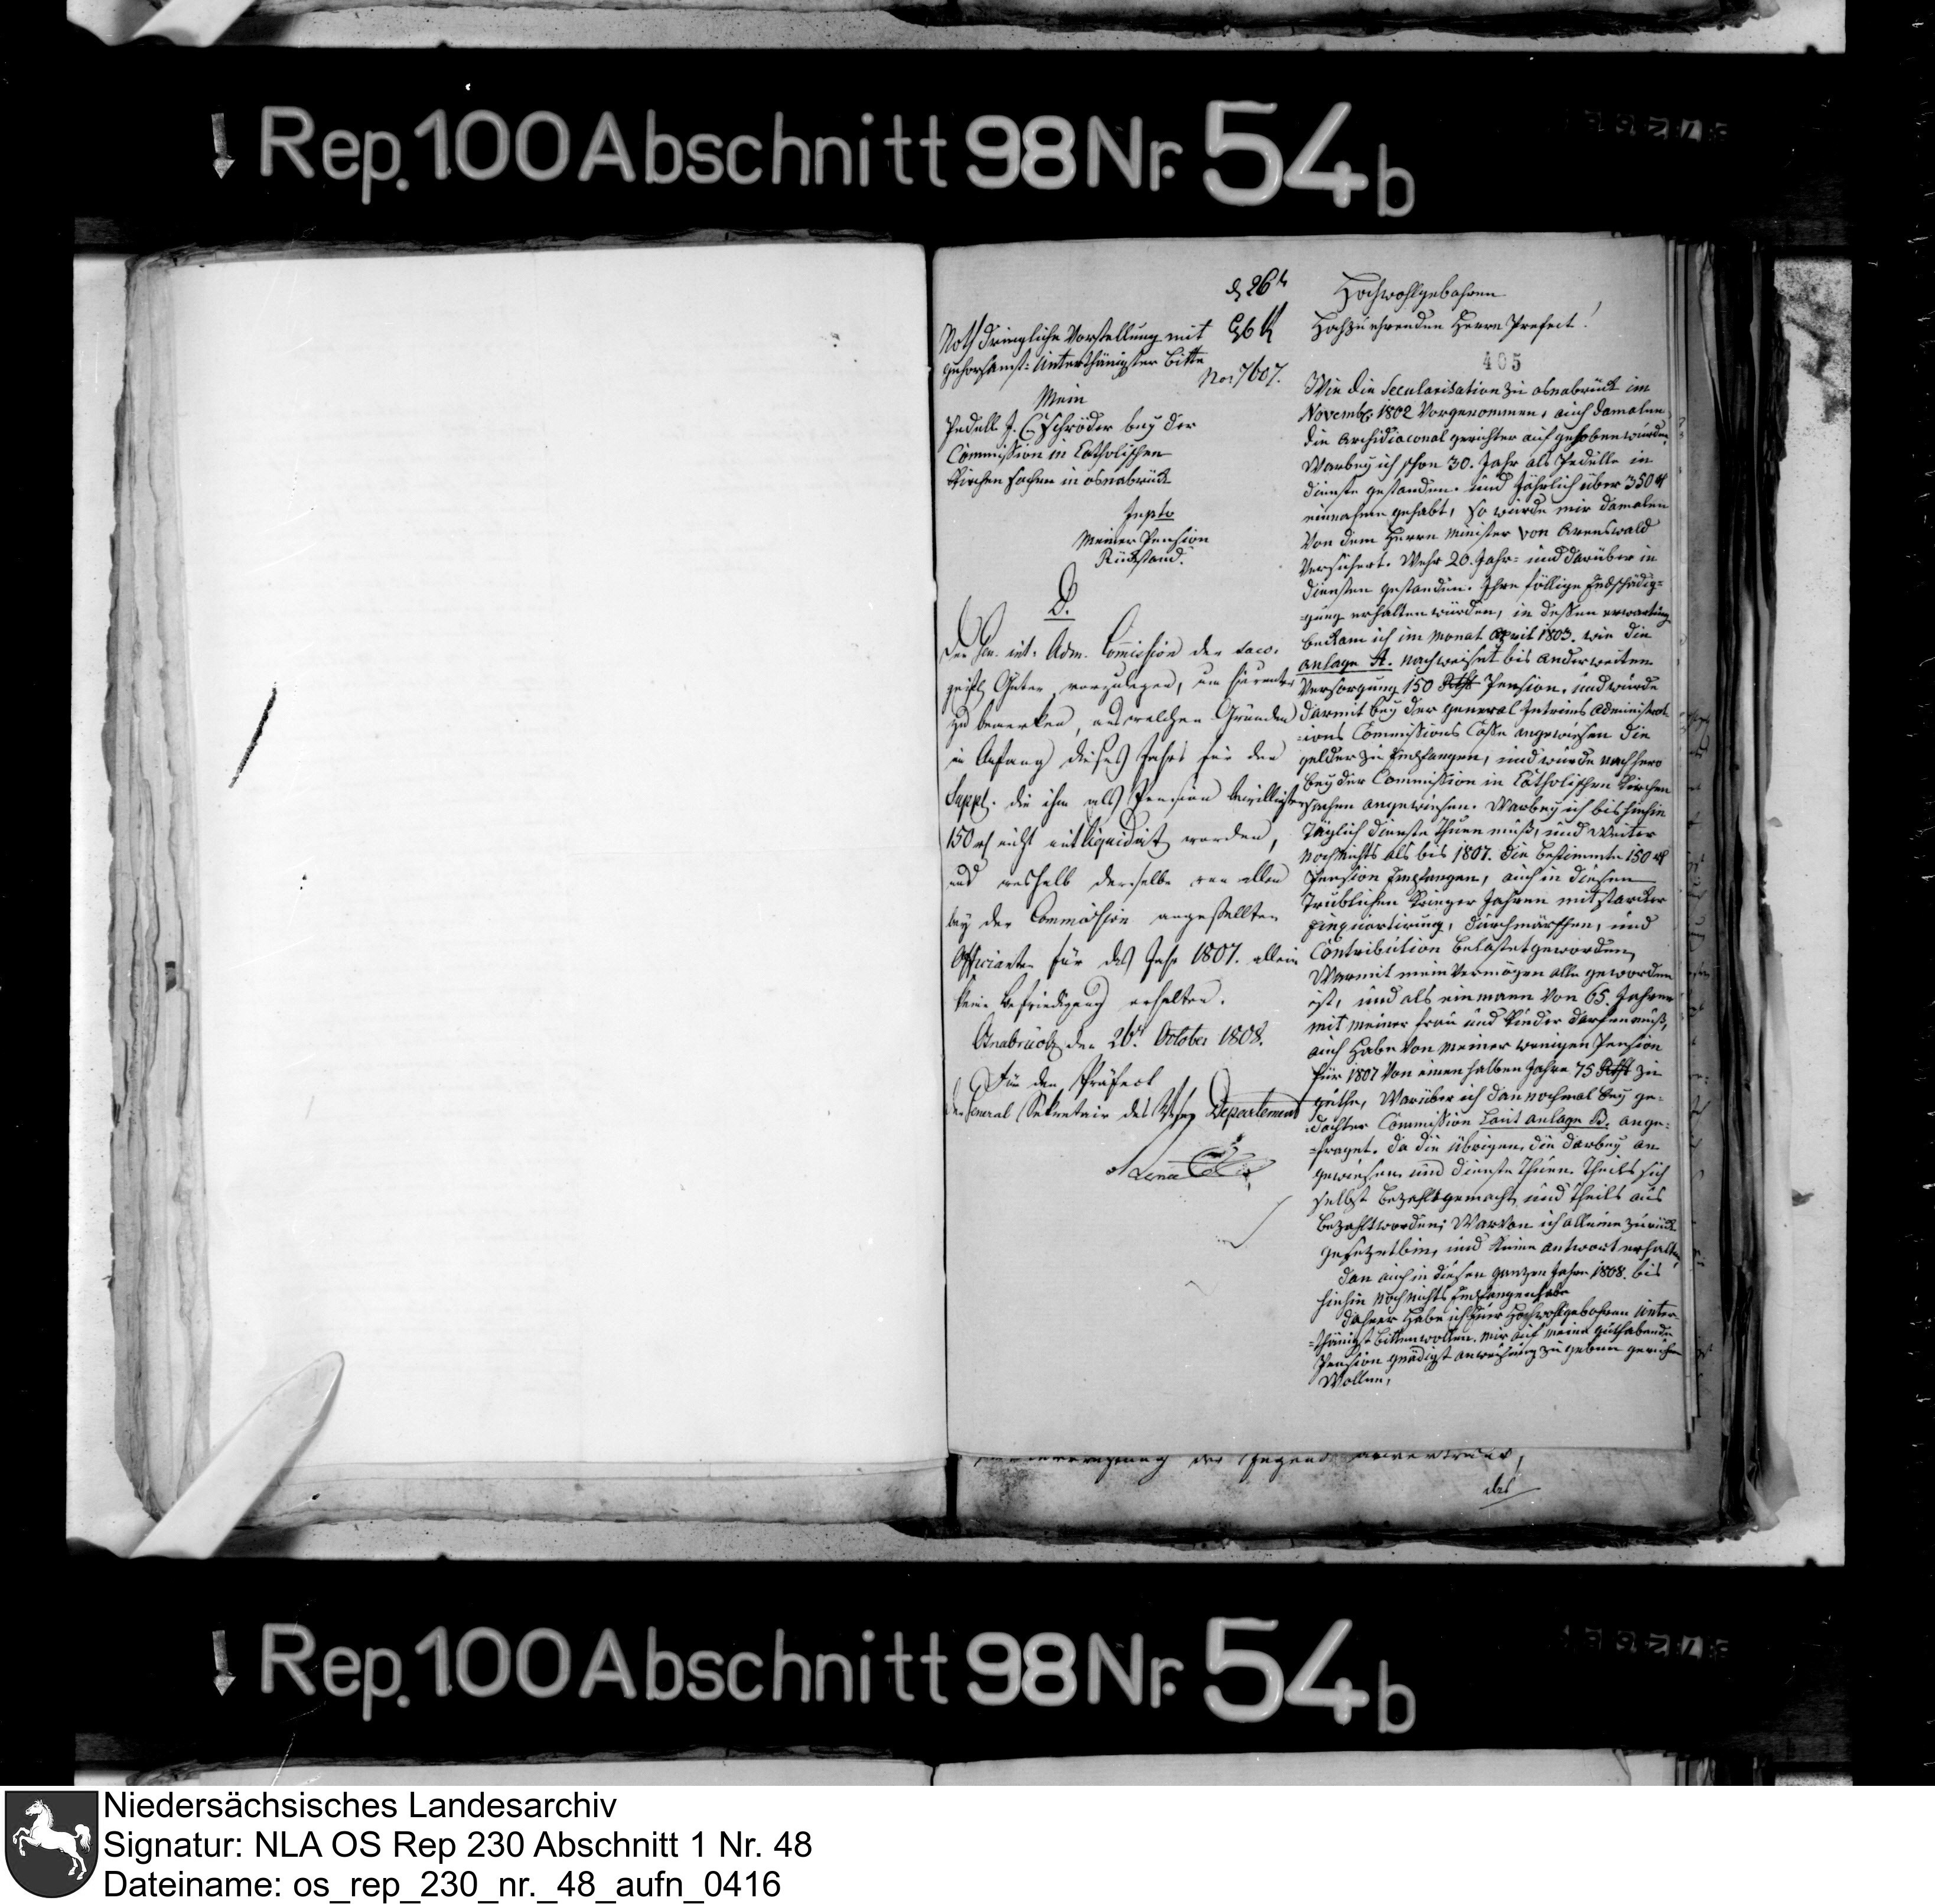 Rep. 100 Abschnitt 98 Nr. 54b
d 26t
Nothdringliche Vorstellung mit
gehorsamst: Unterthänigster bitte
No: 7607.
Mein
Pedell J. C. Schröder bey der
Commission in Catholischen
Kirchen sachen in osnabrück
meiner Pension
Rückstand.
Der int. Adm. Comission der
geistl. Güter vorzulegen, um hierunter
zu bemerken, aus welchen Gründen
im Anfang dieses Jahrs für den
Suppl. die ihm als Pension bewilligten
150 rt nicht mit liquidirt worden,
und weshalb derselbe von allen
bey der Commission angestellten
Officianten für das Jahr 1807. allein
keine Befriedigung erhalten.
Osnabrück den 26t October 1808.
Für den Präfect
der General Sekretair des Weser Departements
Hochwohlgebohrner
Hochzuehrender Herr Prefect!
405
Wie die Secularisation zu osnabrück im
Novemb. 1802 Vorgenommen, auch damalen
die Archidiaconal gerichter aufgehoben wurden
Warbey ich schon 30. Jahr als Pedelle in
dienste gestanden. und Jährlich über 350 rt
einnahme gehabt, so wurde mir damalen
Von dem Herrn Minister von Arenswald
Versichert. Wehr 20. Jahr- und darüber in
diensten gestanden. Ihre föllige Endschädig=
=gung erhalten würden, in dessen erwartung
bekam ich im monat April 1803. wie die
anlage A. nachweiset bis anderweiten
Versorgung 150 Rtlr Pension. und wurde
darmit bey der general Intrims Administrat
=ions Commissions Casse angewiesen die
gelder zu Empfangen, und wurde nachhero
bey der Commission in Catholischen Kirchen
sachen angewiesen. Warbey ich bis hiehin
Täglich dienste thuen muß, und Weiter
noch nichts als bis 1807. die bestimmte 150 rt
Pension Empfangen, auch in diesen
Trüblichen Krieger Jahren mit starcker
Einquartirung, durchmärschen, und
Contribution belastet geworden,
Warmit mein Vermögen alle geworden
ist, und als ein mann Von 65. Jahren
mit meiner frau und Kinder darfen muß,
auch habe Von meiner wenigen Pension
für 1807 Von einen halben Jahre 75 Rtlr zu
guthe, Warüber ich dan nochmal bey ge=
=dachter Commission Laut anlage B. ange=
=fraget. da die übrigen, die darbey an
gewiesen und dienste thuen. Theils sich
selbst bezahlt gemacht, und theils aus
bezahlt worden; Warvon ich alleine zurück
gesetzet bin, und keine antwort erhalten,
dan auch in diesen ganzen Jahre 1808. bis
hiehin noch nichts Empfangen habe
daherr habe ich Euer Hochwohlgebohren unter
=thänigst bitten wollen. mir auf meine guthabende
Pension gnädigst anweisung zu geben geruhen
Wollen,
des
Rep. 100 Abschnitt 98 Nr. 54b
Niedersächsisches Landesarchiv
Signatur: NLA OS Rep 230 Abschnitt 1 Nr. 48
Dateiname: os_rep_230_nr._48_aufn_0416